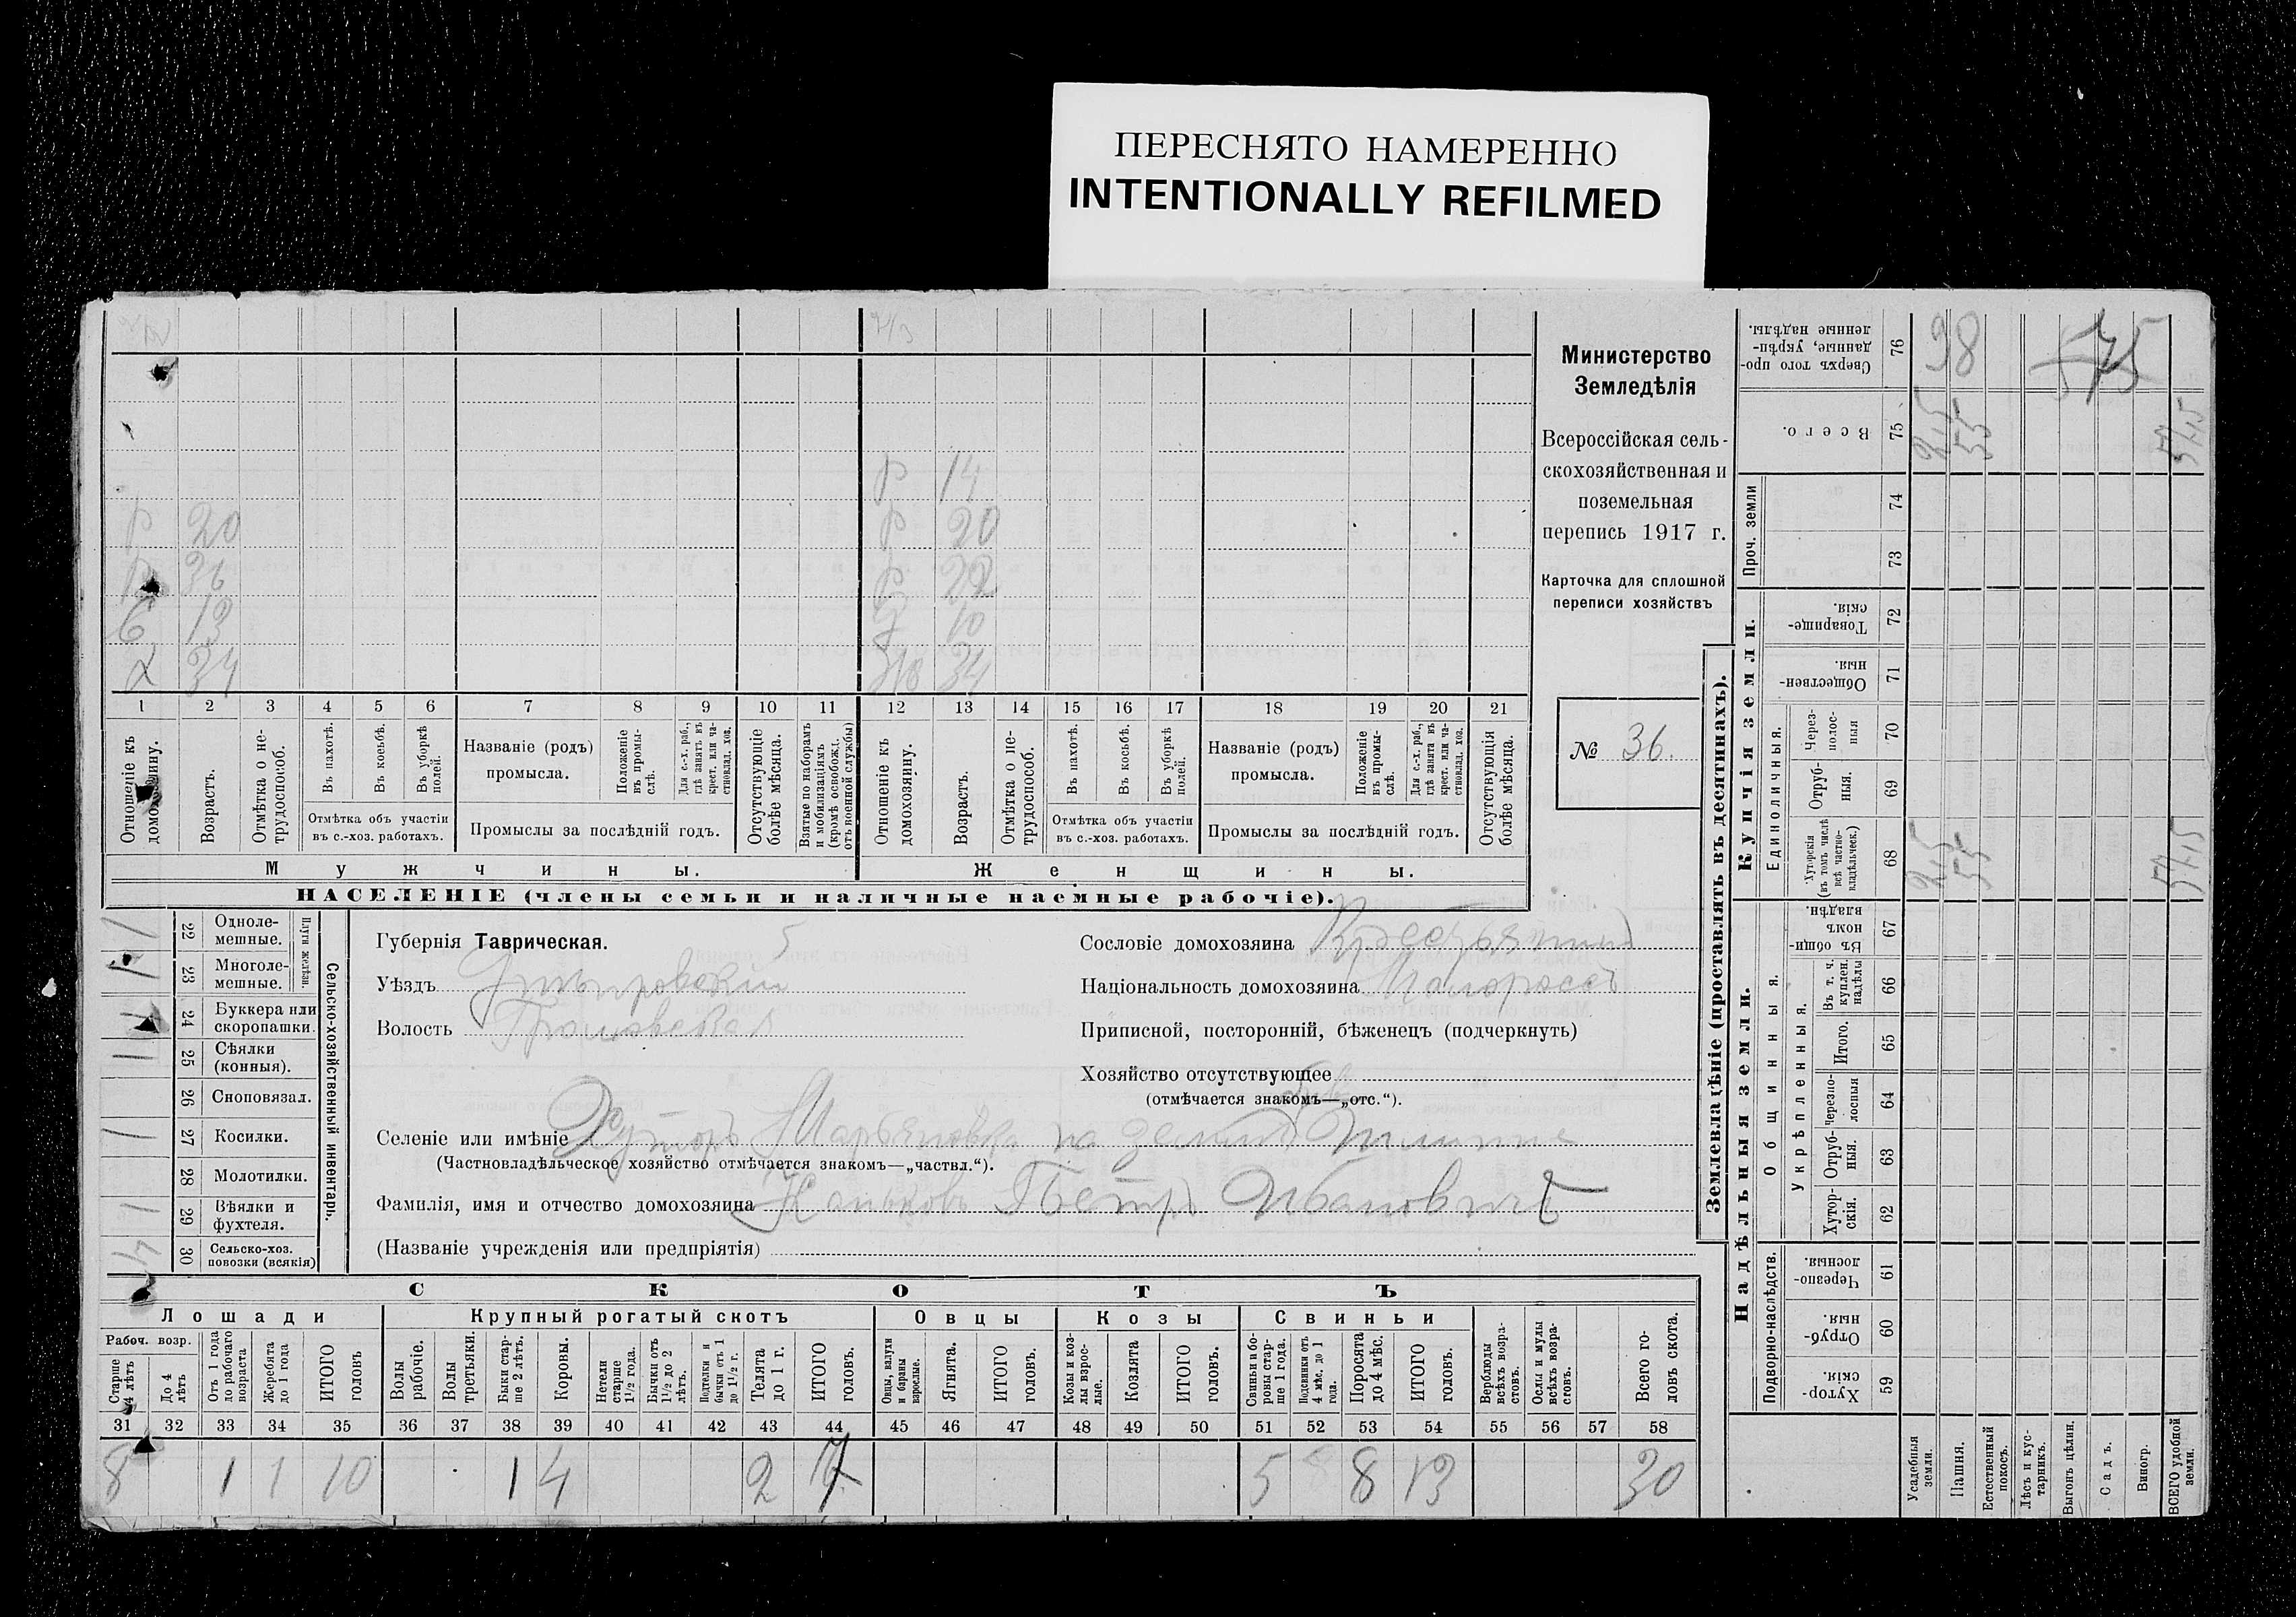 ПЕРЕСНЯТО НАМЕРЕННО
INTENTIONALLY REFILMED
Министерство
Земледѣлія
Всероссійская сель-
скохозяйственная и
поземельная
перепись 1917 г.
Карточка для сплошной
переписи хозяйствъ
№ 36.
Р 14
Р 20 Р 20
36 Р 22
13 10
34 34
1 2 3 4 5 6 7 8 9 10 11 12 13 14 15 16 17 18 19 20 21
Отношеніе къ домохозяину.
Возрастъ.
Отмѣтка о не-
трудоспособ.
Въ пахотѣ.
Въ косьбѣ.
Въ уборкѣ
полей.
Отмѣтка объ участіи
въ с.-хоз. работахъ.
Названіе (родъ)
промысла.
Положеніе
въ промы-
слѣ.
Для с.-х. раб.,
гдѣ занятъ въ
крест. или ча-
стновлад. хоз.
Промыслы за послѣдній годъ.
Отсутствующіе
болѣе мѣсяца.
Взятые по наборамъ
и мобилизаціямъ
(кромѣ освобожд.
отъ военной службы)
Отношеніе къ
домохозяину.
Возрастъ.
Отмѣтка о не-
трудоспособ.
Въ пахотѣ.
Въ косьбѣ.
Въ уборкѣ
полей.
Отмѣтка объ участіи
въ с.-хоз. работахъ.
Названіе (родъ)
промысла.
Положеніе
въ промы-
слѣ.
Для с.-х. раб.,
гдѣ занята въ
крест. или ча-
стновлад. хоз.
Промыслы за послѣдній годъ.
Отсутствующія
болѣе мѣсяца.
Мужчины. Женщины.
НАСЕЛЕНІЕ (члены семьи и наличные наемные рабочіе).
Сельско-хозяйственный инвентарь.
Плуги желѣзн.
22 Одноле-
мешные.
23 Многоле-
мешные.
24 Буккера или
скоропашки.
25 Сѣялки
(конныя).
26 Сноповязал.
27 Косилки.
28 Молотилки.
29 Вѣялки и
фухтеля.
30 Сельско-хоз.
повозки (всякія)
Губернія Таврическая. 5
Уѣздъ
Волость
Сословіе домохозяина
Національность домохозяина Малороссъ
Приписной, посторонній, бѣженецъ (подчеркнуть)
Хозяйство отсутствующее
(отмѣчается знакомъ—„отс.“).
Селеніе или имѣніе Хуторъ Марьяновка на
(Частновладѣльческое хозяйство отмѣчается знакомъ—„частвл.“).
Фамилія, имя и отчество домохозяина Петръ Ивановичъ
(Названіе учрежденія или предпріятія)
СКОТЪ
Лошади Крупный рогатый скотъ Овцы Козы Свиньи
Рабоч. возр.
Старше
4 лѣтъ
До 4
лѣтъ
Отъ 1 года
до рабочаго
возраста
Жеребята
до 1 года
ИТОГО
головъ
Волы
рабочіе.
Волы
третьяки.
Быки стар-
ше 2 лѣтъ.
Коровы.
Нетели
старше
1½ года.
Бычки отъ
1½ до 2
лѣтъ.
Подтелки и
бычки отъ 1
до 1½ г.
Телята
до 1 г.
ИТОГО
головъ.
Овцы, валухи
и бараны
взрослые.
Ягнята.
ИТОГО
головъ.
Козы и коз-
лы взрос-
лые.
Козлята
ИТОГО
головъ.
Свиньи и бо-
ровы стар-
ше 1 года.
Подсвинки отъ
4 мѣс. до 1
года.
Поросята
до 4 мѣс.
ИТОГО
головъ.
Верблюды
всѣхъ возра-
стовъ.
Ослы и мулы
всѣхъ возра-
стовъ.
Всего го-
ловъ скота.
31 32 33 34 35 36 37 38 39 40 41 42 43 44 45 46 47 48 49 50 51 52 53 54 55 56 57 58
8 1 1 10 1 4 2 7 5 8 13 30
Землевладѣніе (проставлять въ десятинахъ).
Купчія земли.
Надѣльныя земли.
Сверхъ того про-
данные, укрѣп-
ленные надѣлы.
76
98
Всего.
75
2,5
55
57,5
Проч. земли
74
73
Товарище-
скія.
72
Обществен-
ныя.
71
Единоличныя.
Через-
полос-
ныя
70
Отруб-
ныя.
69
Хуторскія
(въ томъ числѣ
всѣ частно-
владѣльческ.)
68
2,5
55
57,5
Общинныя.
Въ общин-
номъ
владѣн.
67
Укрѣпленныя.
Въ т. ч.
куплен.
надѣлы
66
Итого.
65
Черезпо-
лосныя
64
Отруб-
ныя.
63
Хутор-
скія.
62
Подворно-наслѣдств.
Черезпо-
лосныя
61
Отруб-
ныя.
60
Хутор-
скія.
59
Усадебныя
земли.
Пашня.
Естественный
покосъ.
Лѣсъ и кус-
тарникъ.
Выгонъ цѣлин.
Садъ.
Виногр.
ВСЕГО удобной
земли.